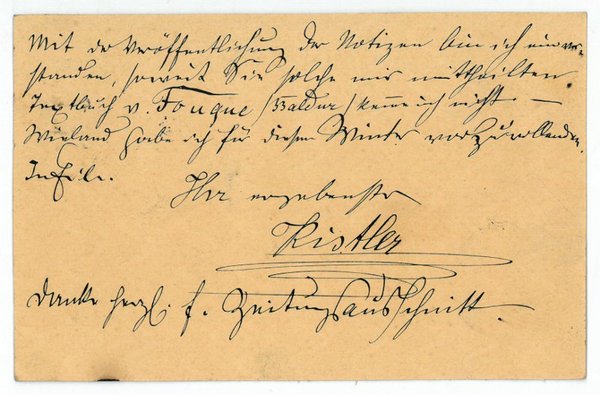 Mit der Veröffentlichung der Notizen bin ich einver-
standen, soweit Sie solche mir mittheilten
Textbuch v. Fouque (Baldur) kenne ich nicht. —
Wieland habe ich für diesen Winter vor zu vollenden.
In Eile.
Ihr ergebenster
Kistler
Danke herzl. f. Zeitungsausschnitt.